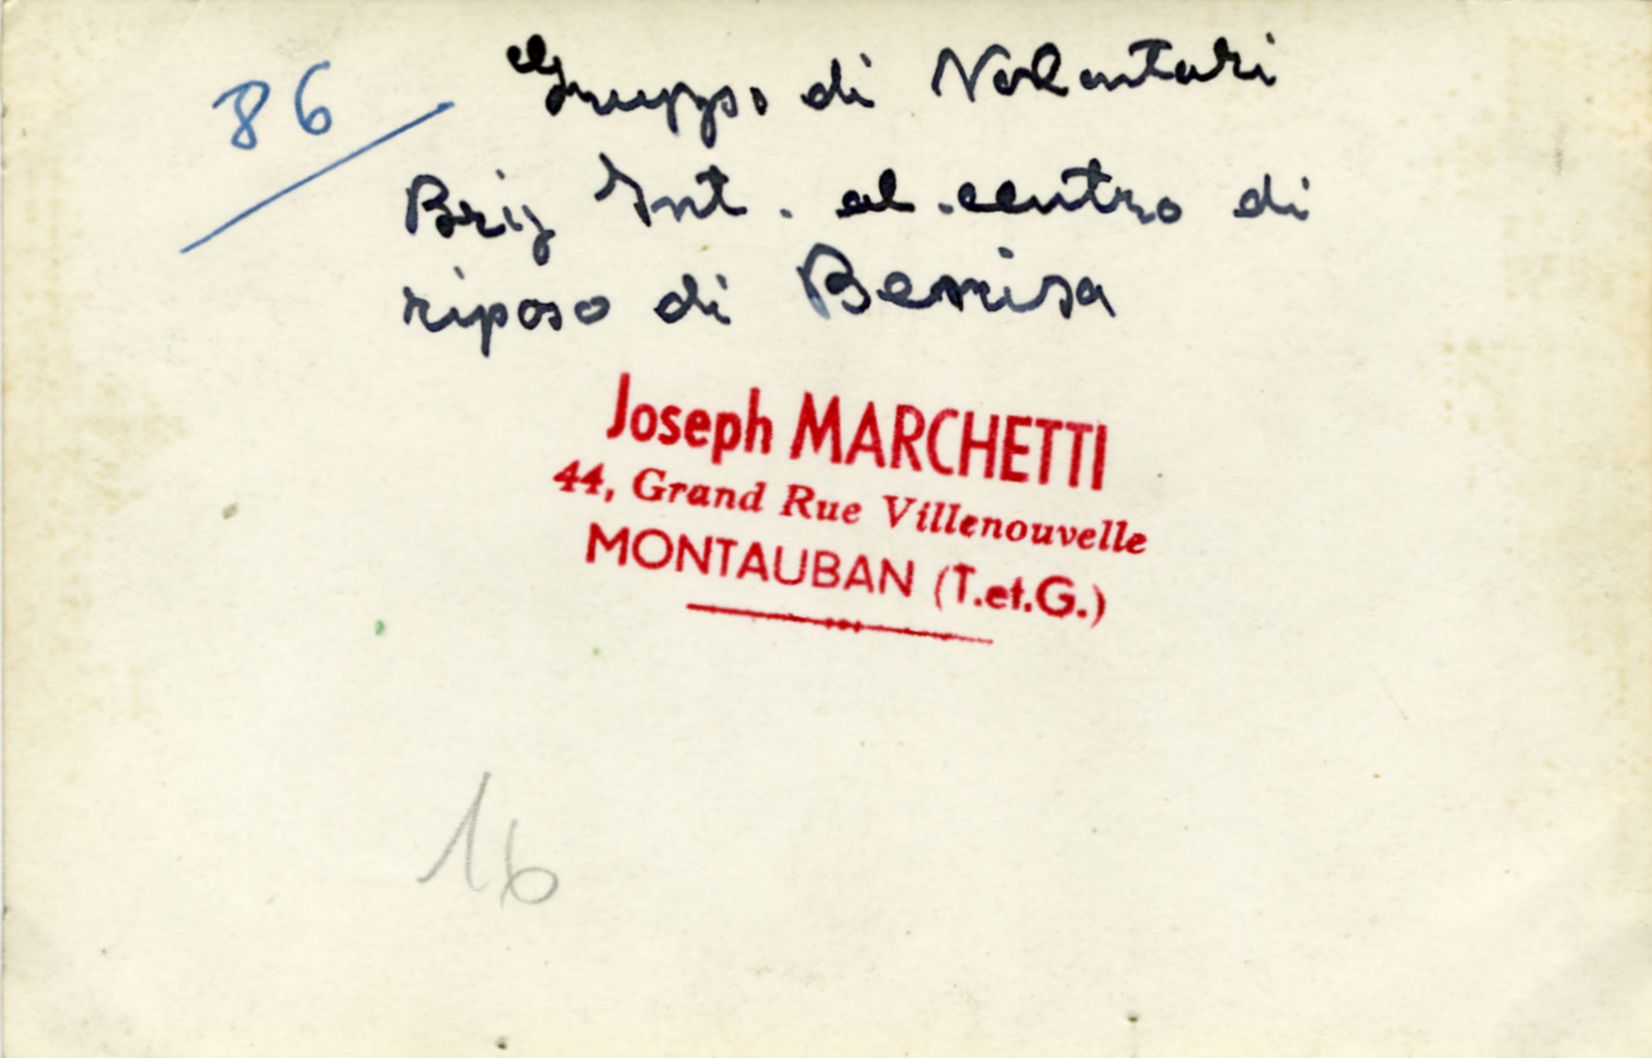 86
Gruppo di Volontari
Brig Int. al centro di
riposo di Benisa
Joseph MARCHETTI
44, Grand Rue Villenouvelle
MONTAUBAN (T.et.G.)
16